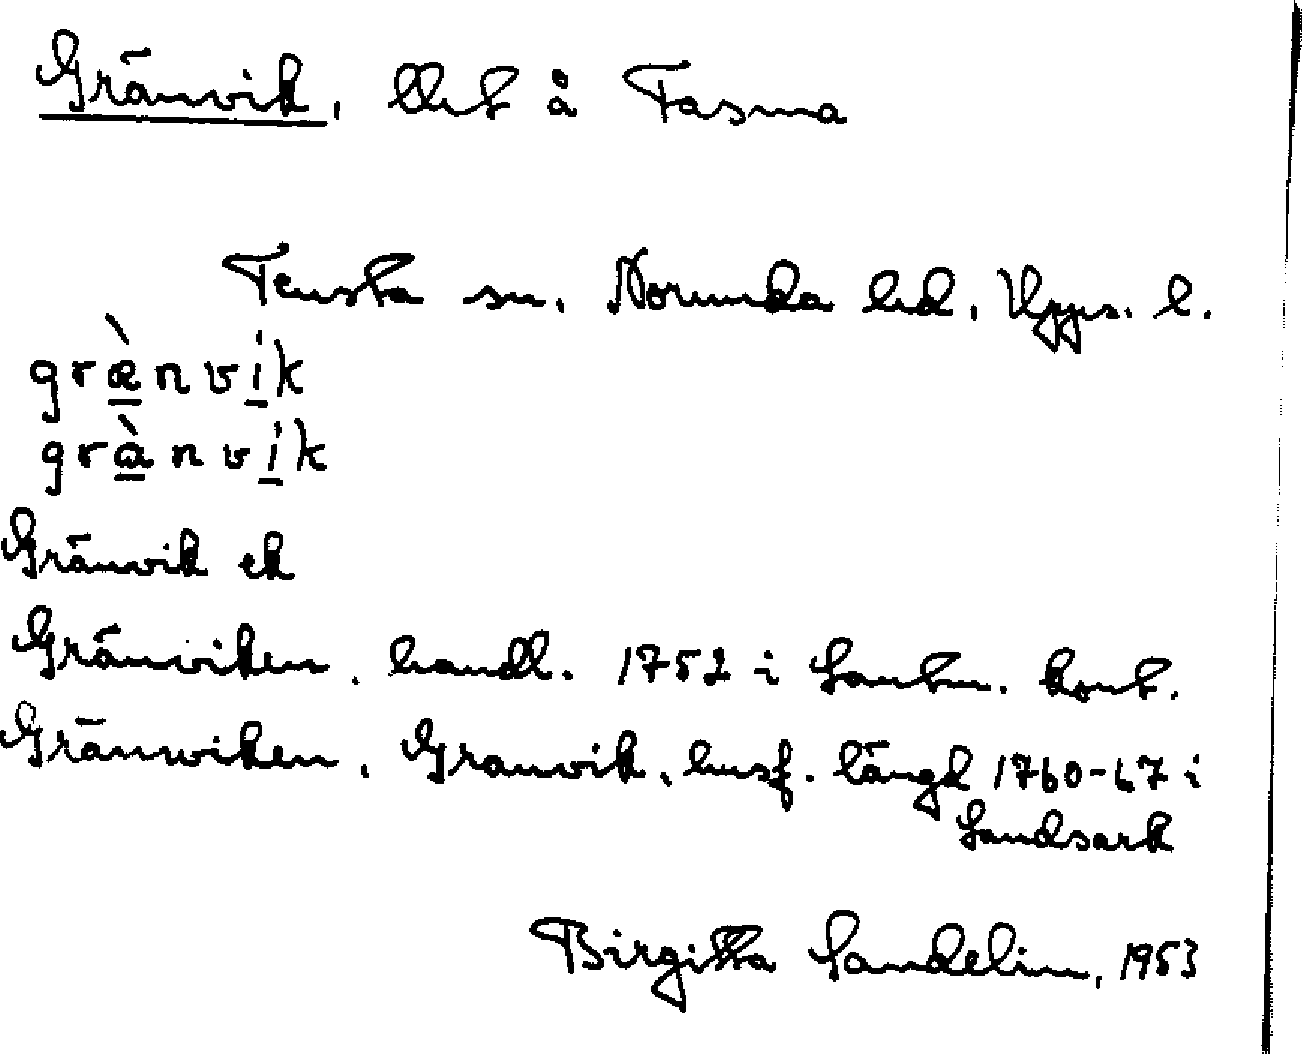 Gränvik, tlht å Tasma
Tensta sn. Norunda hd. Upps. l.
græ̀nvik
grànvik
Gränvik ek
Gränviken, handl. 1752 i Lantm. kont.
Gränwiken, Granvik, husf. längd 1760-67 i
Landsark
Birgitta Sandelin, 1953